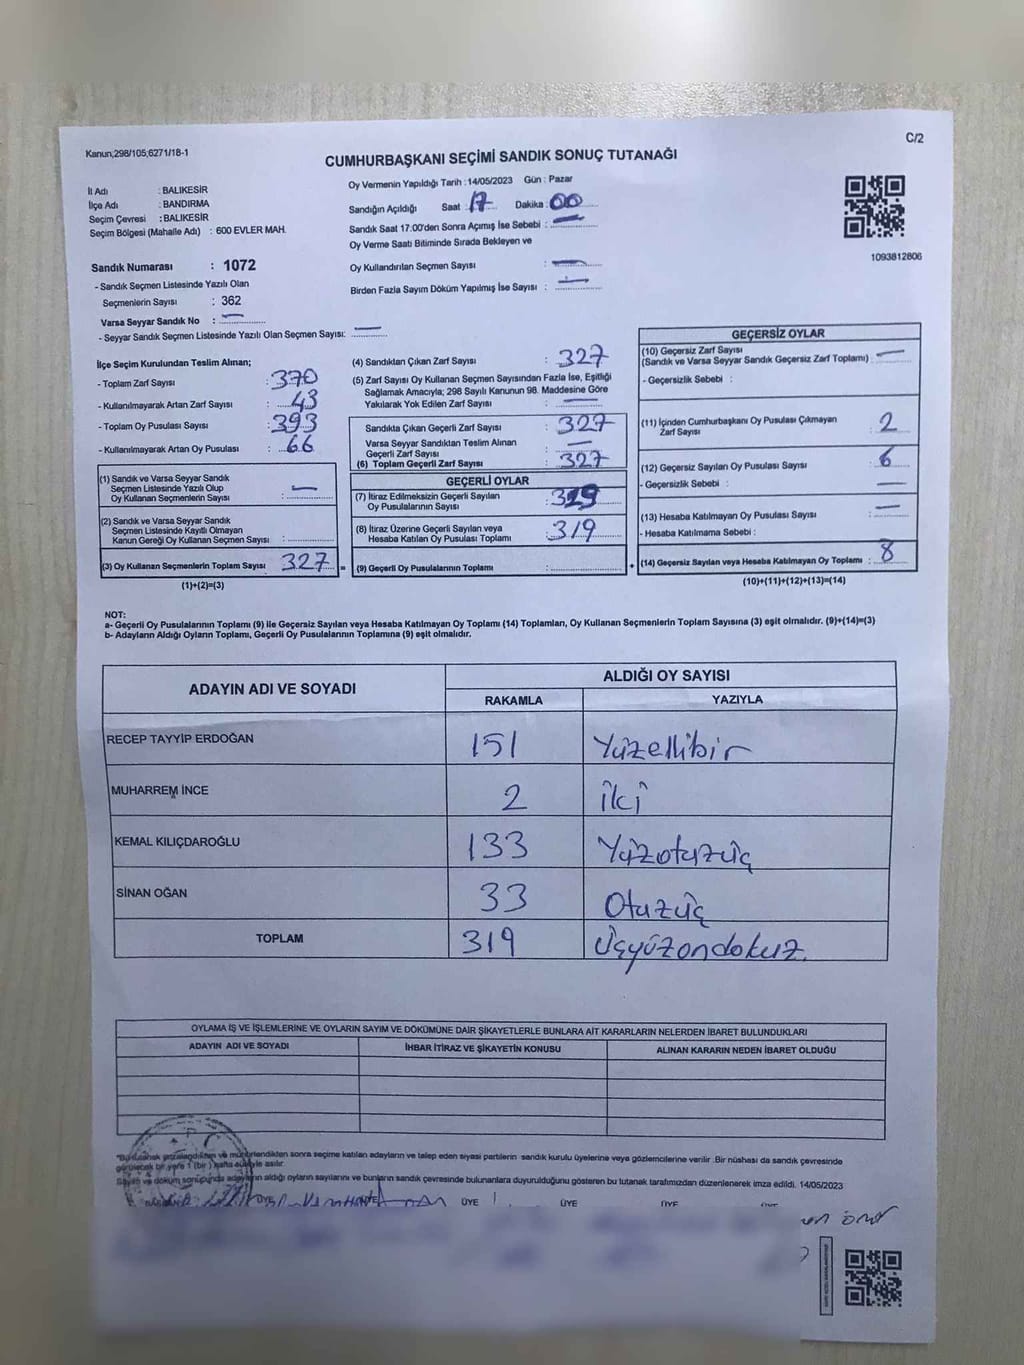 Kanun;298/105;6271/18-1
C/2
CUMHURBAŞKANI SEÇİMİ SANDIK SONUÇ TUTANAĞI
İl Adı : BALIKESİR
İlçe Adı : BANDIRMA
Seçim Çevresi : BALIKESİR
Seçim Bölgesi (Mahalle Adı) : 600 EVLER MAH.
Sandık Numarası : 1072
- Sandık Seçmen Listesinde Yazılı Olan
Seçmenlerin Sayısı : 362
Varsa Seyyar Sandık No : —
- Seyyar Sandık Seçmen Listesinde Yazılı Olan Seçmen Sayısı: —
Oy Vermenin Yapıldığı Tarih :14/05/2023 Gün : Pazar
Sandığın Açıldığı Saat : 17 Dakika : 00
Sandık Saat 17.00'den Sonra Açımış İse Sebebi : —
Oy Verme Saati Bitiminde Sırada Bekleyen ve
Oy Kullandırılan Seçmen Sayısı : —
Birden Fazla Sayım Döküm Yapılmış İse Sayısı : —
1093812806
İlçe Seçim Kurulundan Teslim Alınan;
- Toplam Zarf Sayısı : 370
- Kullanılmayarak Artan Zarf Sayısı : 43
- Toplam Oy Pusulası Sayısı : 393
- Kullanılmayarak Artan Oy Pusulası : 66
(1) Sandık ve Varsa Seyyar Sandık
Seçmen Listesinde Yazılı Olup
Oy Kullanan Seçmenlerin Sayısı : —
(2) Sandık ve Varsa Seyyar Sandık
Seçmen Listesinde Kayıtlı Olmayan
Kanun Gereği Oy Kullanan Seçmen Sayısı :
(3) Oy Kullanan Seçmenlerin Toplam Sayısı : 327 =
(1)+(2)=(3)
(4) Sandıktan Çıkan Zarf Sayısı : 327
(5) Zarf Sayısı Oy Kullanan Seçmen Sayısından Fazla İse, Eşitliği
Sağlamak Amacıyla; 298 Sayılı Kanunun 98. Maddesine Göre
Yakılarak Yok Edilen Zarf Sayısı : —
Sandıkta Çıkan Geçerli Zarf Sayısı : 327
Varsa Seyyar Sandıktan Teslim Alınan
Geçerli Zarf Sayısı : —
(6) Toplam Geçerli Zarf Sayısı : 327
GEÇERLİ OYLAR
(7) İtiraz Edilmeksizin Geçerli Sayılan
Oy Pusulalarının Sayısı : 319
(8) İtiraz Üzerine Geçerli Sayılan veya
Hesaba Katılan Oy Pusulası Toplamı : 319
(9) Geçerli Oy Pusulalarının Toplamı : +
GEÇERSİZ OYLAR
(10) Geçersiz Zarf Sayısı
(Sandık ve Varsa Seyyar Sandık Geçersiz Zarf Toplamı) : —
- Geçersizlik Sebebi :
(11) İçinden Cumhurbaşkanı Oy Pusulası Çıkmayan
Zarf Sayısı : 2
(12) Geçersiz Sayılan Oy Pusulası Sayısı : 6
- Geçersizlik Sebebi : —
(13) Hesaba Katılmayan Oy Pusulası Sayısı : —
- Hesaba Katılmama Sebebi :
(14) Geçersiz Sayılan veya Hesaba Katılmayan Oy Toplamı : 8
(10)+(11)+(12)+(13)=(14)
NOT:
a- Geçerli Oy Pusulalarının Toplamı (9) ile Geçersiz Sayılan veya Hesaba Katılmayan Oy Toplamı (14) Toplamları, Oy Kullanan Seçmenlerin Toplam Sayısına (3) eşit olmalıdır. (9)+(14)=(3)
b- Adayların Aldığı Oyların Toplamı, Geçerli Oy Pusulalarının Toplamına (9) eşit olmalıdır.
ADAYIN ADI VE SOYADI ALDIĞI OY SAYISI
RAKAMLA YAZIYLA
RECEP TAYYİP ERDOĞAN 151 Yüzellibir
MUHARREM İNCE 2 İki
KEMAL KILIÇDAROĞLU 133 Yüzotuzüç
SİNAN OĞAN 33 Otuzüç
TOPLAM 319 Üçyüzondokuz.
OYLAMA İŞ VE İŞLEMLERİNE VE OYLARIN SAYIM VE DÖKÜMÜNE DAİR ŞİKAYETLERLE BUNLARA AİT KARARLARIN NELERDEN İBARET BULUNDUKLARI
ADAYIN ADI VE SOYADI İHBAR İTİRAZ VE ŞİKAYETİN KONUSU ALINAN KARARIN NEDEN İBARET OLDUĞU
"Bu tutanak ve mühürlendikten sonra seçime katılan adayların ve talep eden siyasi partilerin sandık kurulu üyelerine veya gözlemcilerine verilir .Bir nüshası da sandık çevresinde
görülecek bir yere 1 (bir) hafta süreyle asılır.
Sayım ve döküm sonucunda adayların aldığı oyların sayılarını ve bunların sandık çevresinde bulunanlara duyurulduğunu gösteren bu tutanak tarafımızdan düzenlenerek imza edildi. 14/05/2023
ÜYE ÜYE ÜYE ÜYE